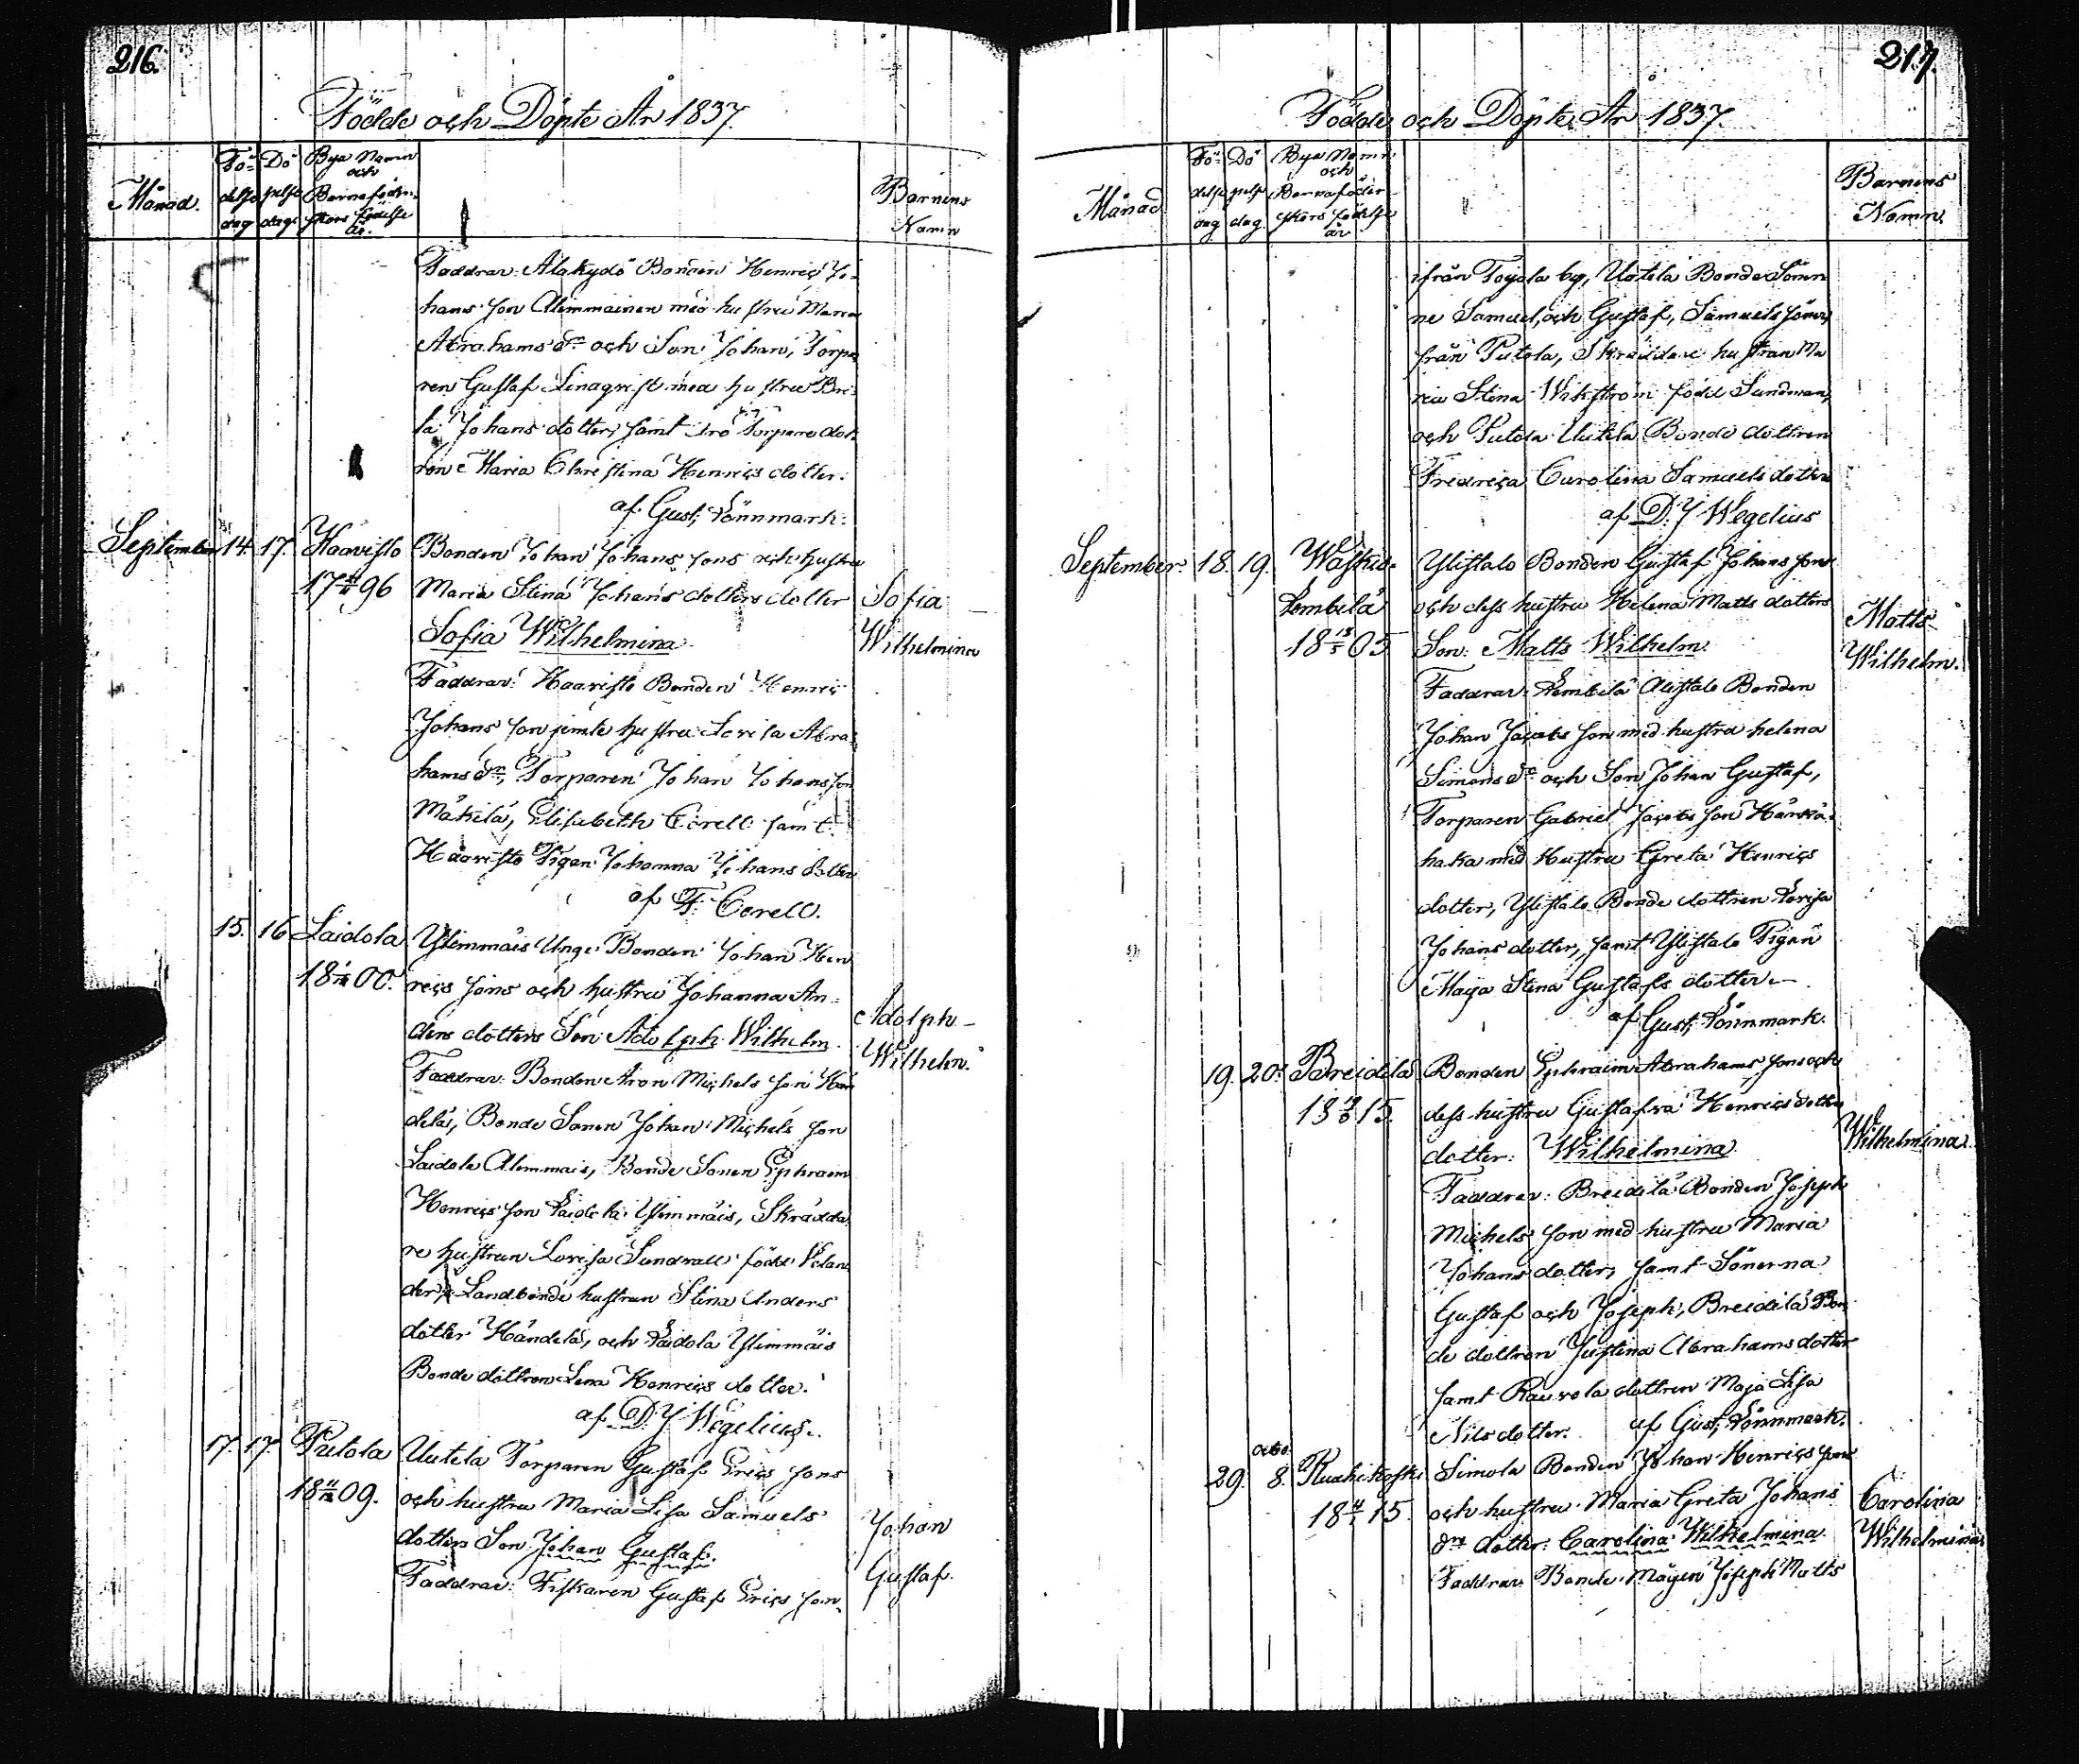 216.
Födde och Döpte År 1837.
Månad.
Fö=
delse
dag
Dö
pelse
dag.
Bya Namn
och
Barnaföder=
skors födelse
år.
Barnens
Namn
Faddrar: Alakydö Bonden Henriç Jo=
hans son Alimmainen med hustru Maria
Abrahams dr och Son Johan, Torpa
ren Gustaf Lindqvist med hustru Bri
ta Johans dotter, samt Torpare dot
ren Maria Christina Henriçs dotter.
af Gust; Lönnmark.
September 14. 17. Haavisto Bonden Johan Johans sons och hustru
17 96 Maria Stina Johans dotters dotter
Sofia Wilhelmina
Sofia
Wilhelmina
Faddrar: Haavisto Bonden Henriç
Johans son jemte hustru Lovisa Abra=
hams dr, Torparen Johan Johans son
Mäkilä, Elisabeth Corell samt
Haavisto Pigan Johanna Johans dotter
af F: Corell.
15. 16 Laidola Ylimmäis Unge Bonden Johan Hen
18 00. riçs sons och hustru Johanna An=
ders dotters Son Adolph Wilhelm
Adolph
Wilhelm.
Faddrar: Bonden Aron Michels son Hän
delä, Bonde Sonen Johan Michels son
Laidola Alimmais, Bonde Sonen Ephraim
Henriçs son Laidola Ylimmäis, Skrädda
re hustrun Lovisa Sundvall född Velan
der, Landbonde hustrun Stina Anders
dotter Händelä, och Laidola Ylimmäis
Bonde dottren Lena Henriçs dotter.
af D: J Wegelius.
17. 17. Putola Uutela Torparen Gustaf Eriçs sons
18 09. och hustru Maria Lisa Samuels
dotters Son Johan Gustaf.
Johan
Gustaf.
Faddrar: Fiskaren Gustaf Eriçs son,
217.
Födde och Döpte År 1837.
Månad
Fö=
delse
dag
Dö
pelse
dag.
Bya Namn
och
Barnaföder
skors födelse
år
Barnens
Namn.
ifrån Toyola by, Uotila Bonde Söner
ne Samuel, och Gustaf, Samuels söner,
från Putola, Skräddare hustrun Ma
ria Stina Wikström född Sundman,
och Putola Uutela Bonde dottren
Fredriça Carolina Samuels dotter
af D: J Wegelius
September. 18. 19. Waskio= Ylistalo Bonden Gustaf Johans sons
Lembilä och dess hustru Helena Matts dotters
18 05 Son: Matts Wilhelm.
Matts
Wilhelm.
Faddrar: Lembilä Alistalo Bonden
Johan Jacobs son med hustru helena
Simons dr och Son Johan Gustaf,
Torparen Gabriel Jacobs son Härkä=
haka med Hustru Greta Henriçs
dotter, Ylistalo Bonde dottren Lovisa
Johans dotter, samt Ylistalo Pigan
Maya Stina Gustafs dotter
af Gust; Lönnmark.
19. 20. Breidilä Bonden Ephraim Abrahams sons och
18 15. dess hustru Gustafva Henriçs dotters
dotter: Wilhelmina.
Wilhelmina
Faddrar: Breidilä Bonden Joseph
Michels son med hustru Maria
Johans dotter, samt Sönerna
Gustaf och Joseph, Breidilä Bon
de dottren Justina Abrahams dotter
samt Rauvola dottren Maja Lisa
Nils dotter. af Gust; Lönnmark.
octob
29. 8. Kuahikoski Simola Bonden Johan Henriçs sons
18 15 och hustru Maria Greta Johans
drs dotter: Carolina Wilhelmina
Carolina
Wilhelmina
Faddrar: Bonde Mågen Joseph Matts